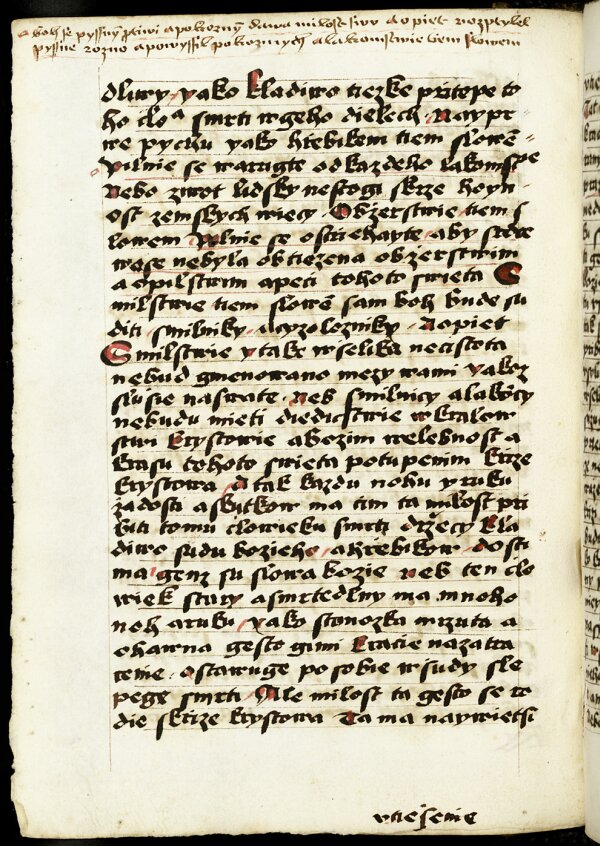 boh se pyssnym protiwi a pokornym dawa milost shuor a opiet rozptylel
pyssne rozno a powyssil pokornych a lakomstwie tiem slowem
dlwy yako kladiwo tiezke przitepe to
ho cloᵃ smrti w geho dielech Naypr
we pychu yako hrzebikem tiem slowē
Pilnie se warugte od kazdeho lakomspe
Nebo ziwot lidsky nestogi skrze hoyn
ost zemskych wiecy Obzerstwie tiem s
lowem Pilnie se ostriehayte aby srdce
wase nebyla obtiezena obzerstwim
a opilstwim a peci tohoto swieta S
milstwie tiem slowē sam boh bude su
diti smilniky a cyzolozniky A opiet
Smilstwie y take wselika necistota
nebud gmenowano mezy wami yakoz
slusie na swate Neb smilnicy a lakōcy
nebudu mieti diedicstwie w kralow
stwi krystowie a bozim welebnost a
krasu tohoto swieta potupenim krze
krystowa A tak kazdu nohu y ruku
zadosti a skutkow ma tim ta milost pri
biti tomu clowieku smrti drzecy kla
diwo sudu bozieho a hrzebikow dosti
ma genz su slowa bozie Neb ten clo
wiek stary a smrtedlny ma mnoho
noh a ruku yako stonozka mrzuta a
oharna gesto gimi kracie na zatra
cenie a starage po sobie w sudy sle
pege smrti Ale milost ta gesto se ro
die skrze krystowa Ta ma naywietsi
vtiesenie